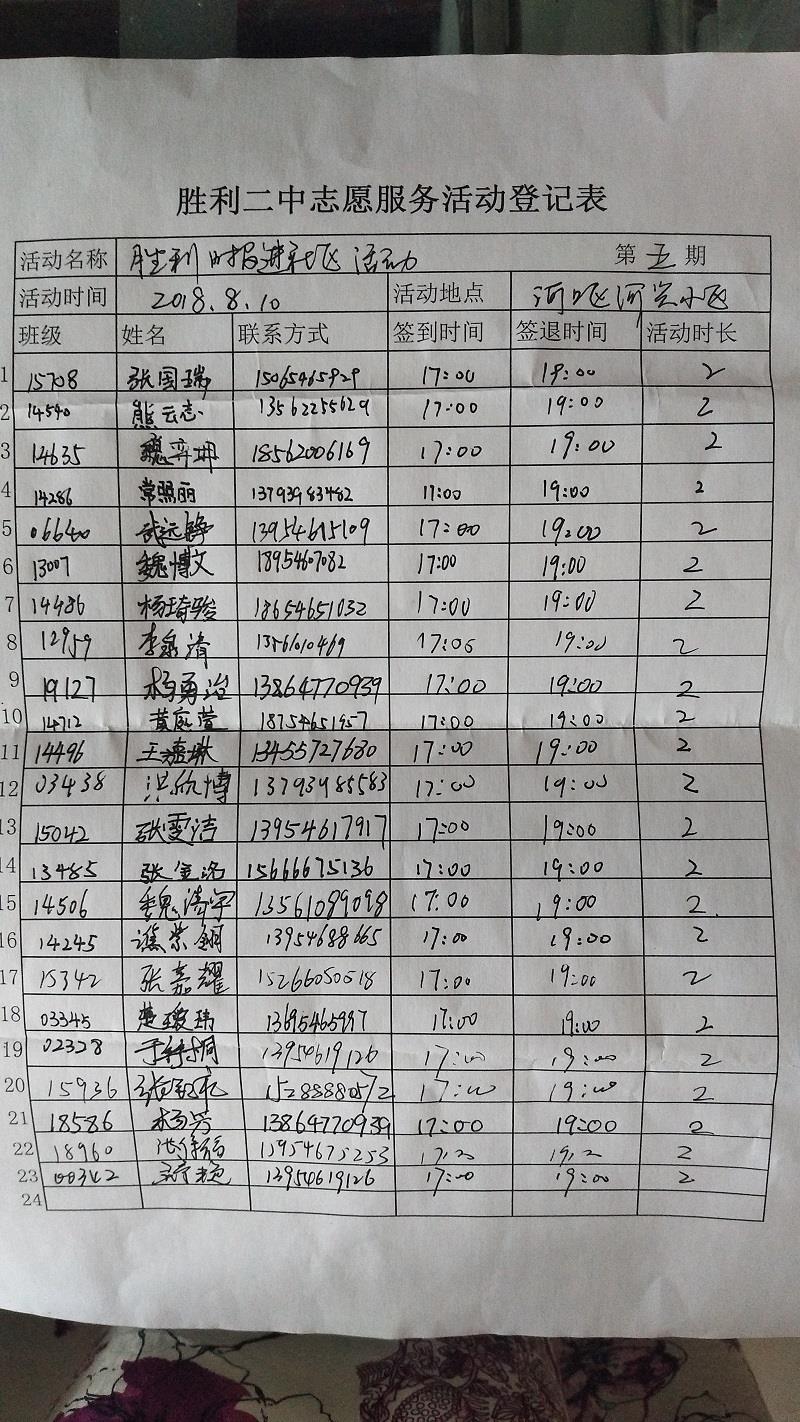 胜利二中志愿服务活动登记表
活动名称 胜利时报进社区活动 第 五 期
活动时间 2018.8.10 活动地点 河口区河滨小区
班级 姓名 联系方式 签到时间 签退时间 活动时长
1 15708 张国瑞 15065465929 17:00 19:00 2
2 14540 熊云志 13562255629 17:00 19:00 2
3 14635 魏弈坤 18562006169 17:00 19:00 2
4 14286 常照丽 13793983482 17:00 19:00 2
5 06640 武远静 13954615109 17:00 19:00 2
6 13007 魏博文 18954607082 17:00 19:00 2
7 14486 杨琦骏 18654651032 17:00 19:00 2
8 12959 李 清 17:00 19:00 2
9 19127 杨勇治 13864770939 17:00 19:00 2
10 14712 黄庭莹 18754651957 17:00 19:00 2
11 14496 王嘉琳 13455727680 17:00 19:00 2
12 03438 洪欣博 13793985583 17:00 19:00 2
13 15042 张雯洁 13954617917 17:00 19:00 2
14 13485 张金洛 15666675136 17:00 19:00 2
15 14506 魏涛宇 13561099098 17:00 19:00 2
16 14245 谯紫钢 13954688665 17:00 19:00 2
17 15342 张嘉耀 15266050618 17:00 19:00 2
18 03345 楚璇玮 13695465997 17:00 19:00 2
19 02328 13954619126 17:00 19:00 2
20 15936 15288880572 17:00 19:00 2
21 18586 杨芳 13864770939 17:00 19:00 2
22 18960 15954675253 2
23 00342 13954619126 17:00 19:00 2
24